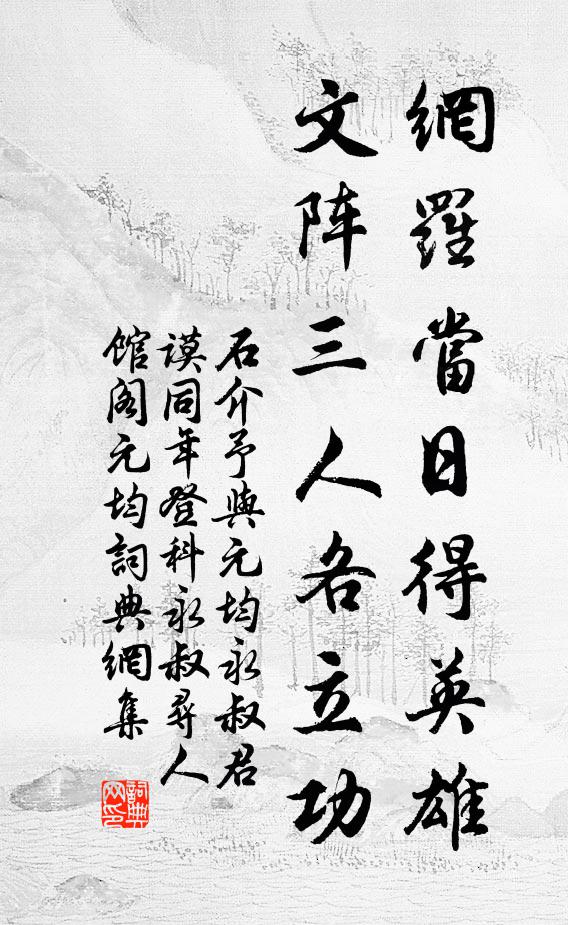 網羅當日得英雄
文阵三人各立功
石介予與元均永叔君
谟同年登科永叔尋人
馆阁元均詞典網集
詞典
网印